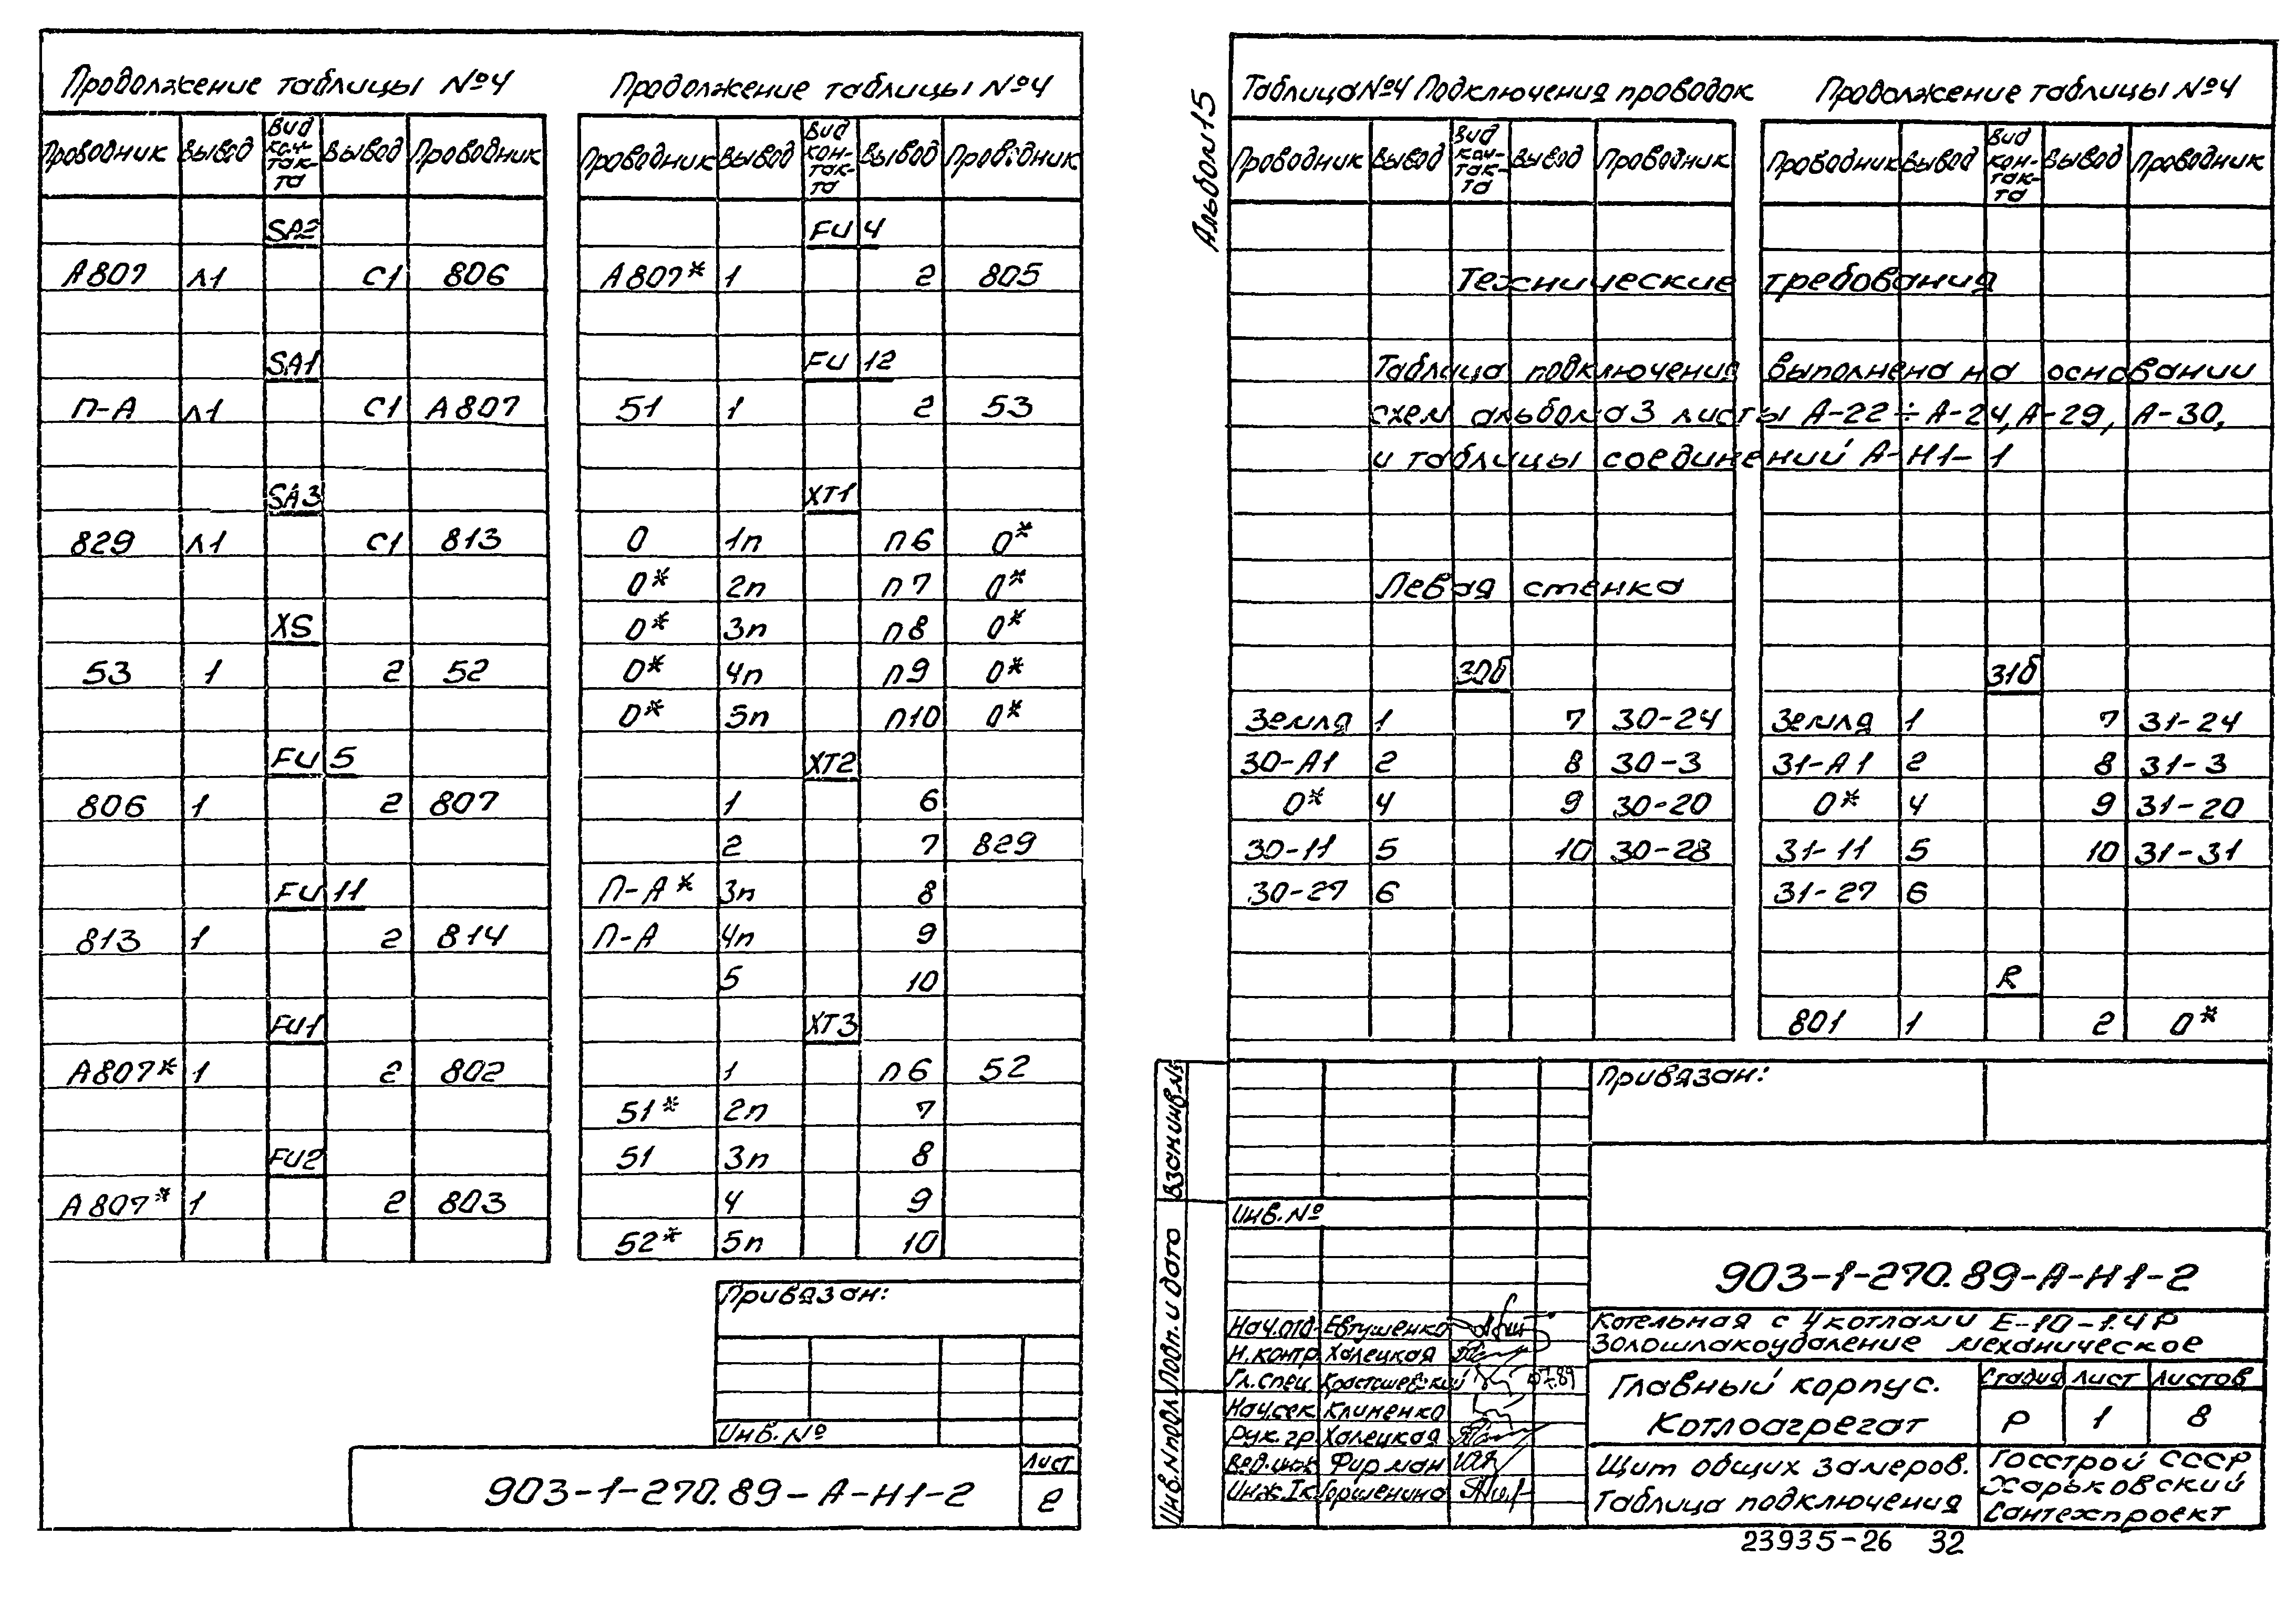 Продолжение таблицы №4
Проводник Вывод Вид кон-так-та Вывод Проводник
SA2
А807 л1 С1 806
SA1
П-А л1 С1 А807
SA3
829 л1 С1 813
XS
53 1 2 52
FU 5
806 1 2 807
FU 11
813 1 2 814
FU1
А807* 1 2 802
FU2
А807* 1 2 803
Продолжение таблицы №4
Проводник Вывод Вид кон-так-та Вывод Проводник
FU 4
А807* 1 2 805
FU 12
51 1 2 53
XT1
0 1п п6 0*
0* 2п п7 0*
0* 3п п8 0*
0* 4п п9 0*
0* 5п п10 0*
XT2
1 6
2 7 829
П-А* 3п 8
П-А 4п 9
5 10
XT3
1 п6 52
51* 2п 7
51 3п 8
4 9
52* 5п 10
Привязан:
Инв.№
903-1-270.89-А-Н1-2
Лист
2
Альбом 15
Таблица №4 Подключения проводок
Проводник Вывод Вид кон-так-та Вывод Проводник
Продолжение таблицы №4
Проводник Вывод Вид кон-так-та Вывод Проводник
Технические требования
Таблица подключения выполнена на основании
схем альбома 3 листы А-22÷А-24, А-29, А-30,
и таблицы соединений А-Н1-1
Левая стенка
30б
Земля 1 7 30-24
30-А1 2 8 30-3
0* 4 9 30-20
30-11 5 10 30-28
30-27 6
31б
Земля 1 7 31-24
31-А1 2 8 31-3
0* 4 9 31-20
31-11 5 10 31-31
31-27 6
R
801 1 2 0*
Взам.инв.№
Подп. и дата
Инв.№подл.
Привязан:
Инв.№
903-1-270.89-А-Н1-2
Котельная с 4 котлами Е-10-1.4Р
Золошлакоудаление механическое
Нач.отд. Евтушенко
Н.контр. Халецкая
Гл.спец. 07.89
Нач.сек. Клименко
Рук.гр. Халецкая
Вед.инж. Фирман
Инж.Iк. Горшенина
Главный корпус.
Котлоагрегат
Стадия Лист Листов
Р 1 8
Щит общих замеров.
Таблица подключения
Госстрой СССР
Харьковский
Сантехпроект
23935-26 32